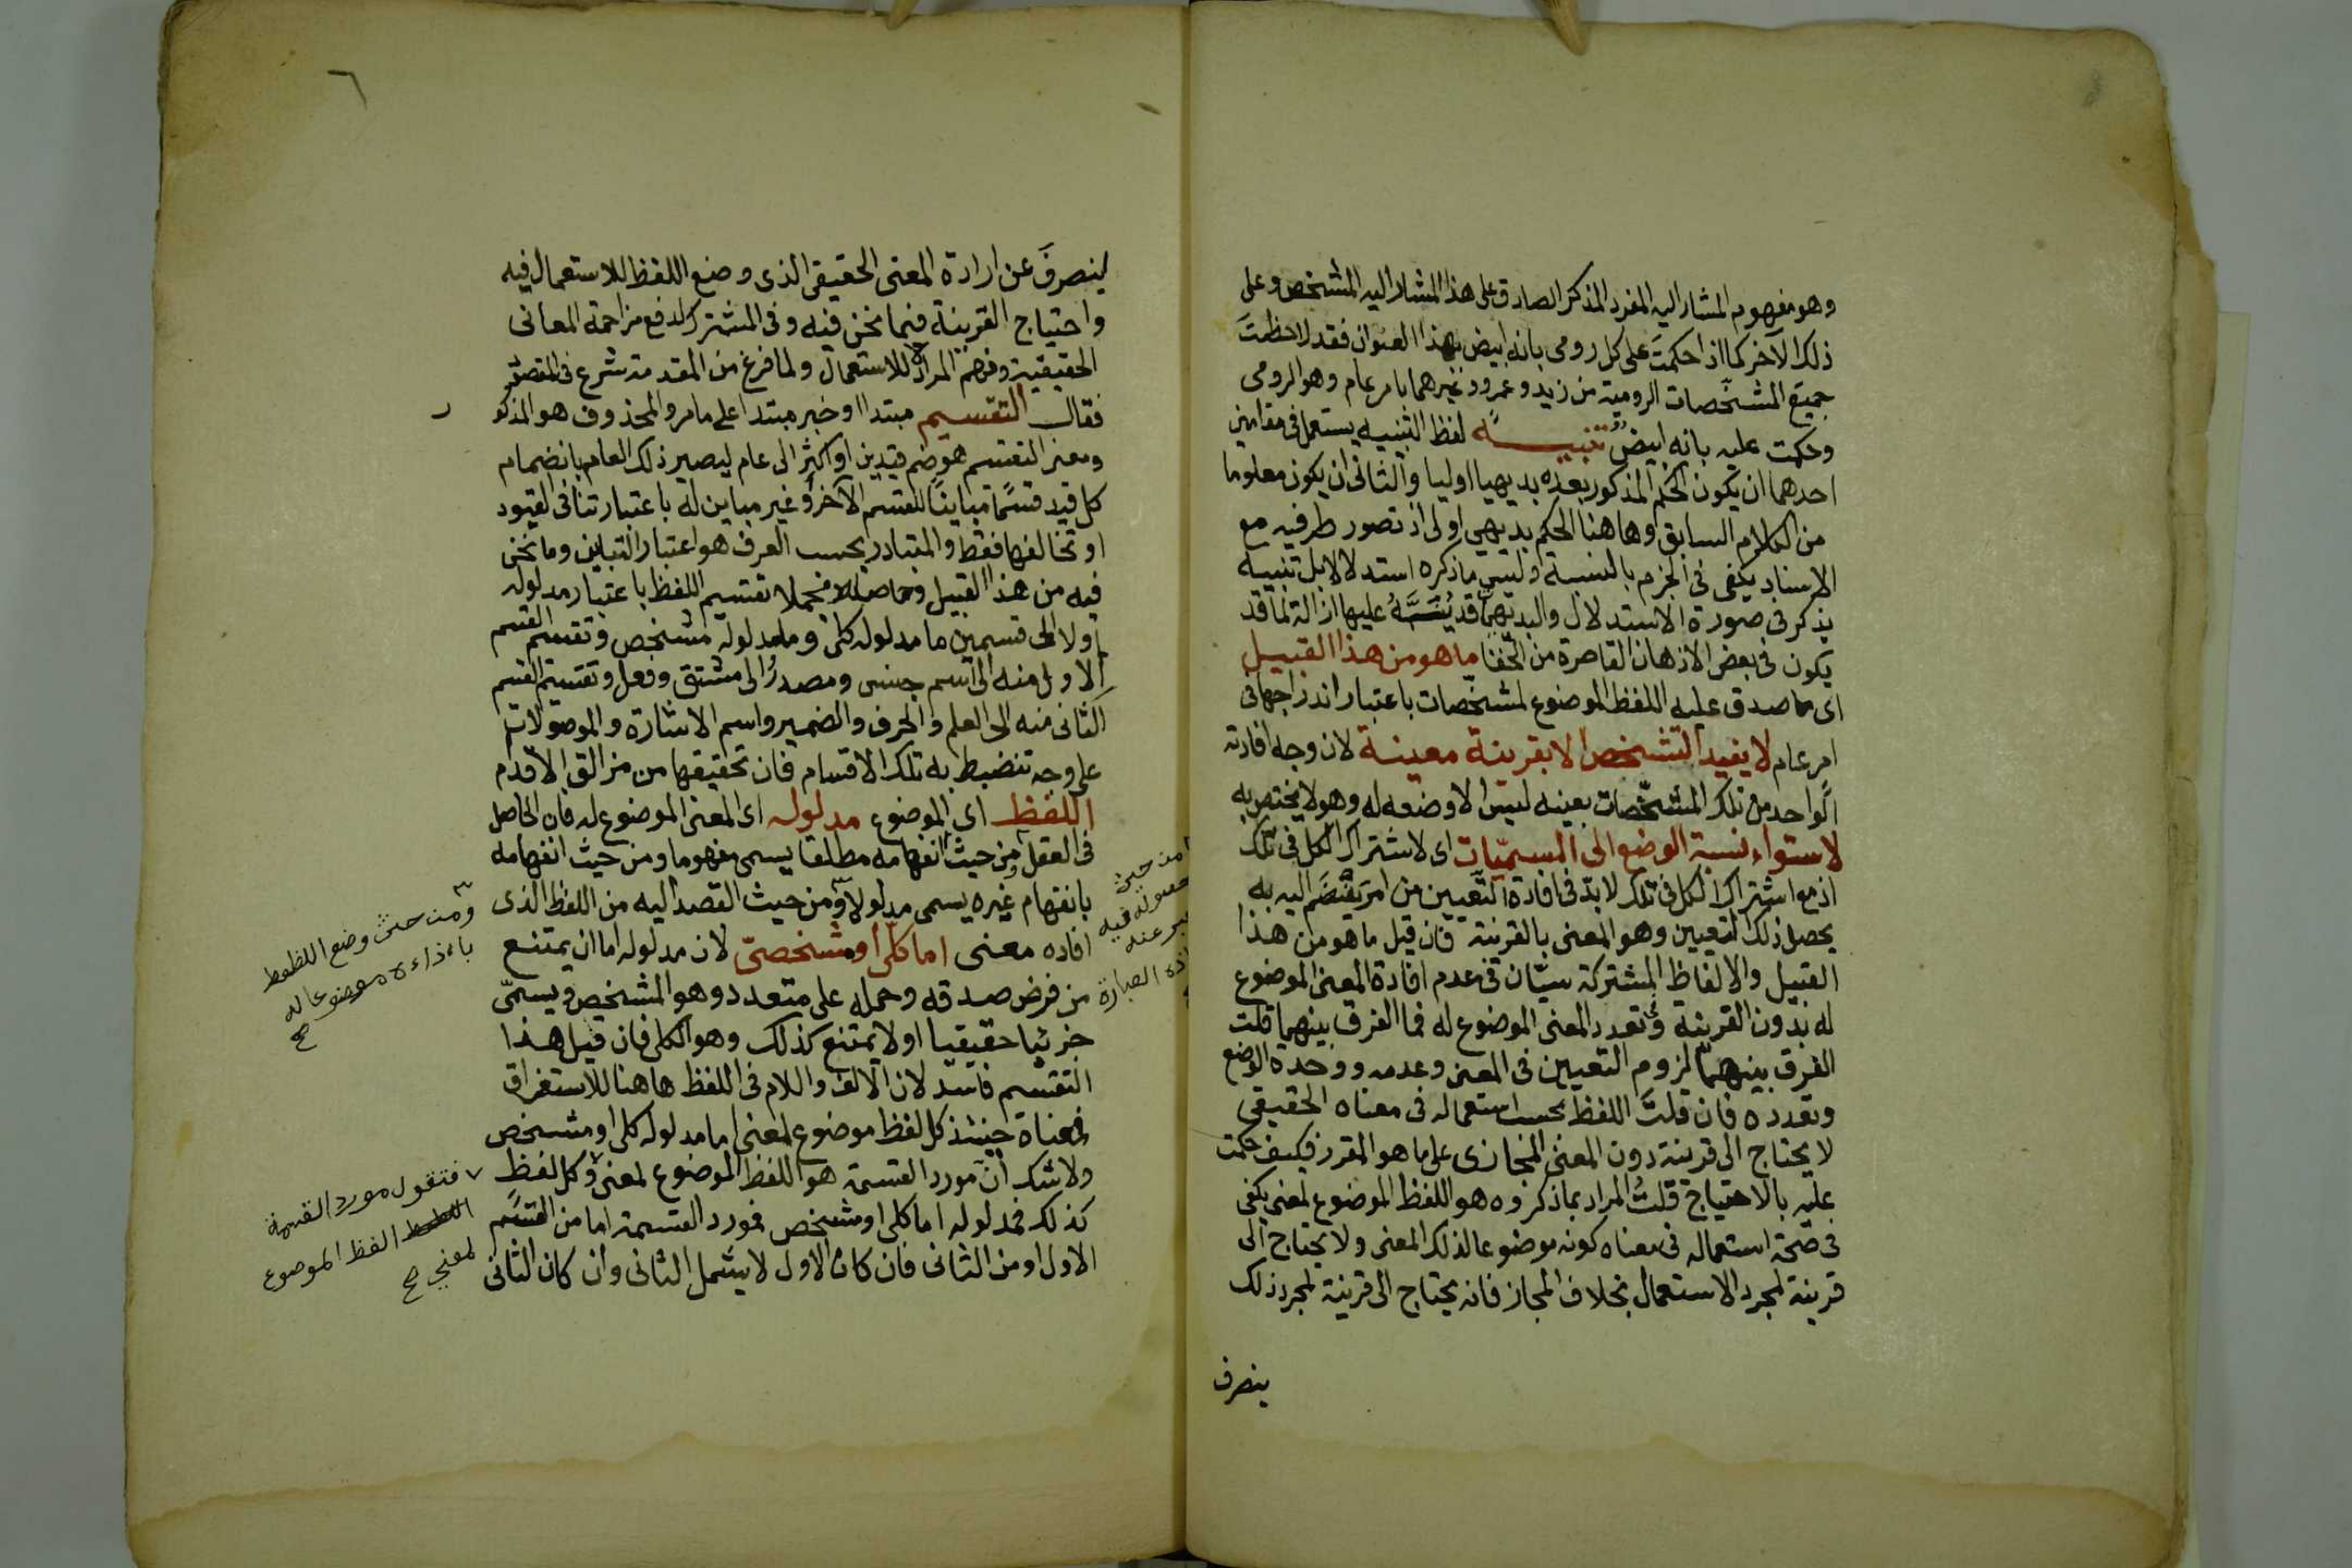 وهو مفهوم المشار اليه المفرد المذكر الصادق على هذا المشار اليه المشخص وعلى
ذلك الآخر كما اذا حكمت على كل رومى بانه ابيض بهذا العنوان فقد لاحظت
جميع المشخصات الرومية من زيد وعمرو وغيرهما بامر عام وهو الرومى
وحكمت عليه بانه ابيض تنبيه لفظ التنبيه يستعمل فى مقامين
احدهما ان يكون الحكم المذكور بعده بديهيا اوليا والثانى ان يكون معلوما
من الكلام السابق وهاهنا الحكم بديهى اولى اذ تصور طرفيه مع
الاسناد يكفى فى الجزم بالنسبة وليس ماذكره استدلالا بل تنبيه
يذكر فى صورة الاستدلال والبديهى قد ينبه عليها ازالة لما قد
يكون فى بعض الاذهان القاصرة من الخفا ما هو من هذا القبيل
اى ما صدق عليه اللفظ الموضوع لمشخصات باعتبار اندراجها فى
امر عام لا يفيد التشخص الا بقرينة معينة لان وجه افادته
الواحد من تلك المشخصات بعينه ليس الا وضعه له وهو لا يختص به
لاستواء نسبة الوضع الى المسميات اى لاشتراك الكل فى تلك
اذ مع اشتراك الكل فى تلك لا بد فى افادة التعيين من امر ينضم اليه به
يحصل ذلك التعيين وهو المعنى بالقرينة فان قيل ما هو من هذا
القبيل والالفاظ المشتركة سيان فى عدم افادة المعنى الموضوع
له بدون القرينة وتعدد المعنى الموضوع له فما الفرق بينهما قلت
الفرق بينهما لزوم التعيين فى المعنى وعدمه ووحدة الوضع
وتعدده فان قلت اللفظ بحسب استعماله فى معناه الحقيقى
لا يحتاج الى قرينة دون المعنى المجازى على ما هو المقرر فكيف حكمت
عليه بالاحتياج قلت المراد بما ذكروه هو اللفظ الموضوع لمعنى يكفى
فى صحة استعماله فى معناه كونه موضوعا لذلك المعنى ولا يحتاج الى
قرينة لمجرد الاستعمال بخلاف المجاز فانه يحتاج الى قرينة لمجرد ذلك
ينصرف
٦
لينصرف عن ارادة المعنى الحقيقى الذى وضع اللفظ للاستعمال فيه
واحتياج القرينة فيما نحن فيه وفى المشترك لدفع مزاحمة المعانى
الحقيقية وفهم المراد لا للاستعمال ولما فرغ من المقدمة شرع فى التقسيم
فقال التقسيم مبتدا او خبر مبتدا على ما مر والمحذوف هو المذكور
ومعنى التقسيم هو ضم قيدين او اكثر الى عام ليصير ذلك العام بانضمام
كل قيد قسما مباينا للقسم الآخر او غير مباين له باعتبار تنافى القيود
او تخالفها فقط والمتبادر بحسب العرف هو اعتبار التباين وما نحن
فيه من هذا القبيل وحاصله مجملا تقسيم اللفظ باعتبار مدلوله
اولا الى قسمين ما مدلوله كلى وما مدلوله مشخص وتقسيم القسم
الاول منه الى اسم جنس ومصدر والى مشتق وفعل وتقسيم القسم
الثانى منه الى العلم والحرف والضمير واسم الاشارة والموصولات
على وجه تنضبط به تلك الاقسام فان تحقيقها من مزالق الاقدم
اللفظ اى الموضوع مدلوله اى المعنى الموضوع له فان الحاصل
فى العقل من حيث انفهامه مطلقا يسمى مفهوما ومن حيث انفهامه
بانفهام غيره يسمى مدلولا ومن حيث القصد اليه من اللفظ الذى
افاده معنى اما كلى او مشخص لان مدلوله اما ان يمتنع
من فرض صدقه وحمله على متعدد وهو المشخص ويسمى
جزئيا حقيقيا او لا يمتنع كذلك وهو الكلى فان قيل هذا
التقسيم فاسد لان الالف واللام فى اللفظ هاهنا للاستغراق
فمعناه حينئذ كل لفظ موضوع لمعنى اما مدلوله كلى او مشخص
ولا شك ان مورد القسمة هو اللفظ الموضوع لمعنى وكل لفظ
كذلك فمدلوله اما كلى او مشخص فمورد القسمة اما من القسم
الاول او من الثانى فان كان الاول لا يشمل الثانى وان كان الثانى
من حيث
حصوله فيه
ومن حيث وضع اللفظ
باذاءه موضوعا له
صح
فنقول مورد القسمة
اللفظ الموضوع
لمعنى صح